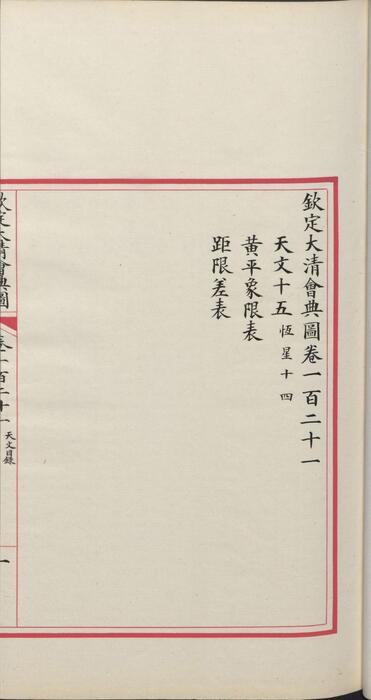 欽定大清會典圖卷一百二十一
天文十五 恆星十四
黃平象限表
距限差表
欽定大清會典圖
卷一百二十一 天文目錄
一